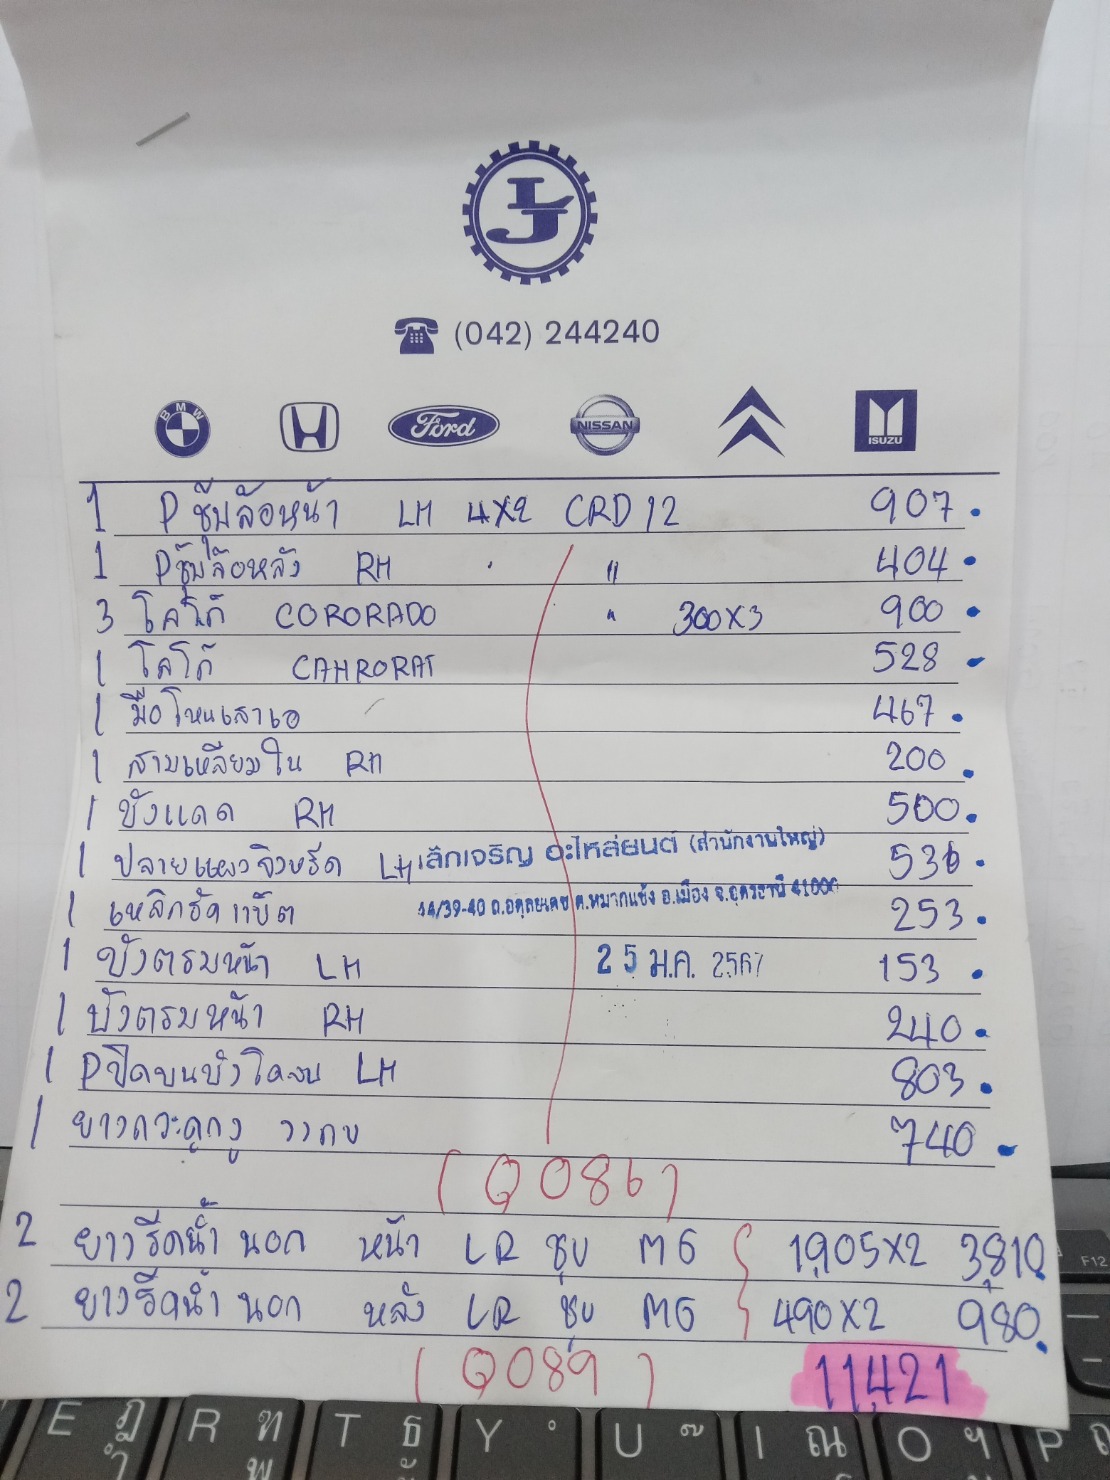 LJ
(042) 244240
BMW
Ford
NISSAN
ISUZU
1 P ซุ้มล้อหน้า LH 4X2 CRD 12 907.
1 Pซุ้มล้อหลัง RH " 404.
3 โลโก้ CORORADO " 300X3 900.
1 โลโก้ CAHRORAT 528
1 มือโหนเสาเอ 467.
1 สามเหลี่ยมใน RH 200.
1 บังแดด RH 500.
1 ปลายแผงจิงหรีด LH 536.
เล้กเจริญ อะไหล่ยนต์ (สำนักงานใหญ่)
1 เหล็กรัดแบ็ต 253.
44/39-40 ถ.อดุลยเดช ต.หมากแข้ง อ.เมือง จ.อุดรธานี 41000
1 บังตรมหน้า LH 153.
25 ม.ค. 2567
1 บังตรมหน้า RH 240.
1 Pปิดบนบังโคลน LH 803.
1 ยางกระดูกงู 740.
(Q086)
2 ยางรีดน้ำ นอก หน้า LR ชุบ MG 1,905X2 3,810.
2 ยางรีดน้ำ นอก หลัง LR ชุบ MG 490X2 980.
(Q089) 11,421
E ฏ ำ
R ฑ พ
T ธ ะ
Y
U
I ณ
O ฯ
P
F12